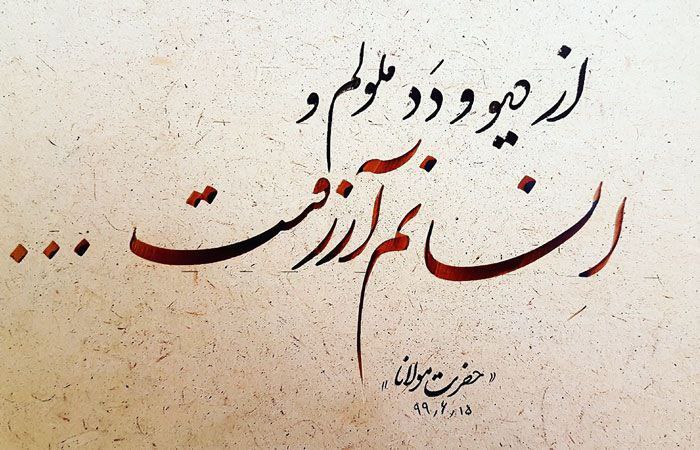 از دیو و دَد ملولم و
انسانم آرزوست ...
«حضرت مولانا»
۹۹٫۶٫۱۵